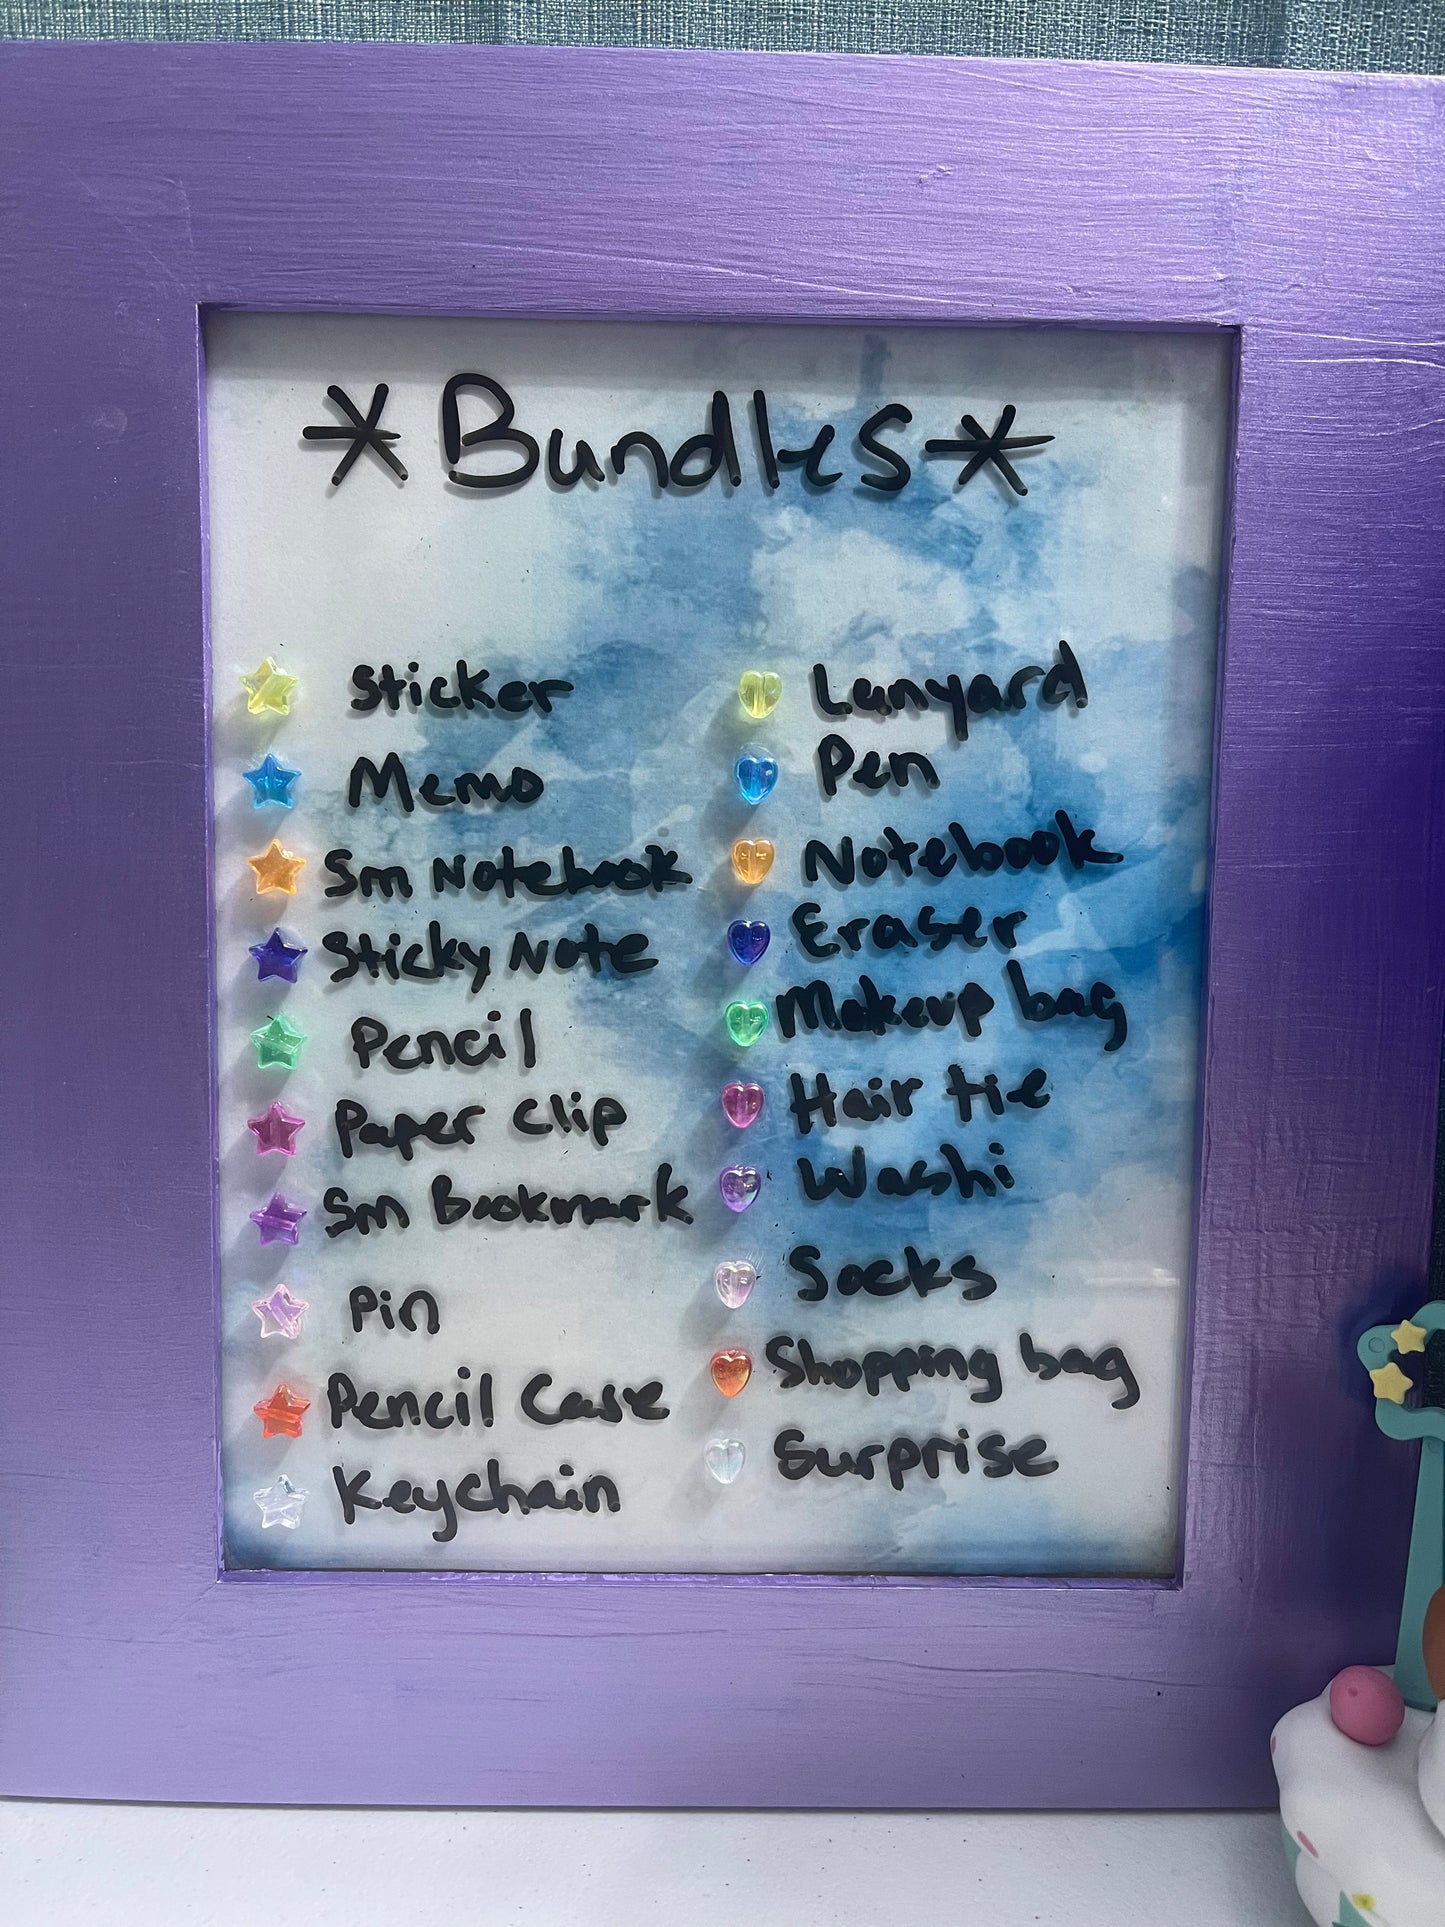 *Bundles*
Sticker
Memo
Sm Notebook
Sticky Note
Pencil
Paper Clip
Sm Bookmark
Pin
Pencil Case
Keychain
Lanyard
Pen
Notebook
Eraser
Makeup bag
Hair tie
Washi
Socks
Shopping bag
Surprise